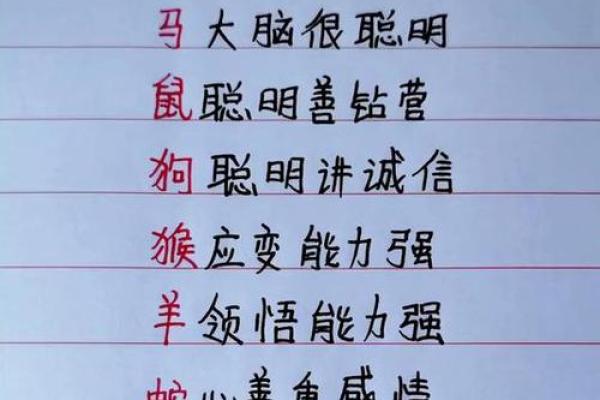 马大脑很聪明
鼠聪明善钻营
狗聪明讲诚信
猴应变能力强
羊领悟能力强
蛇心善重感情